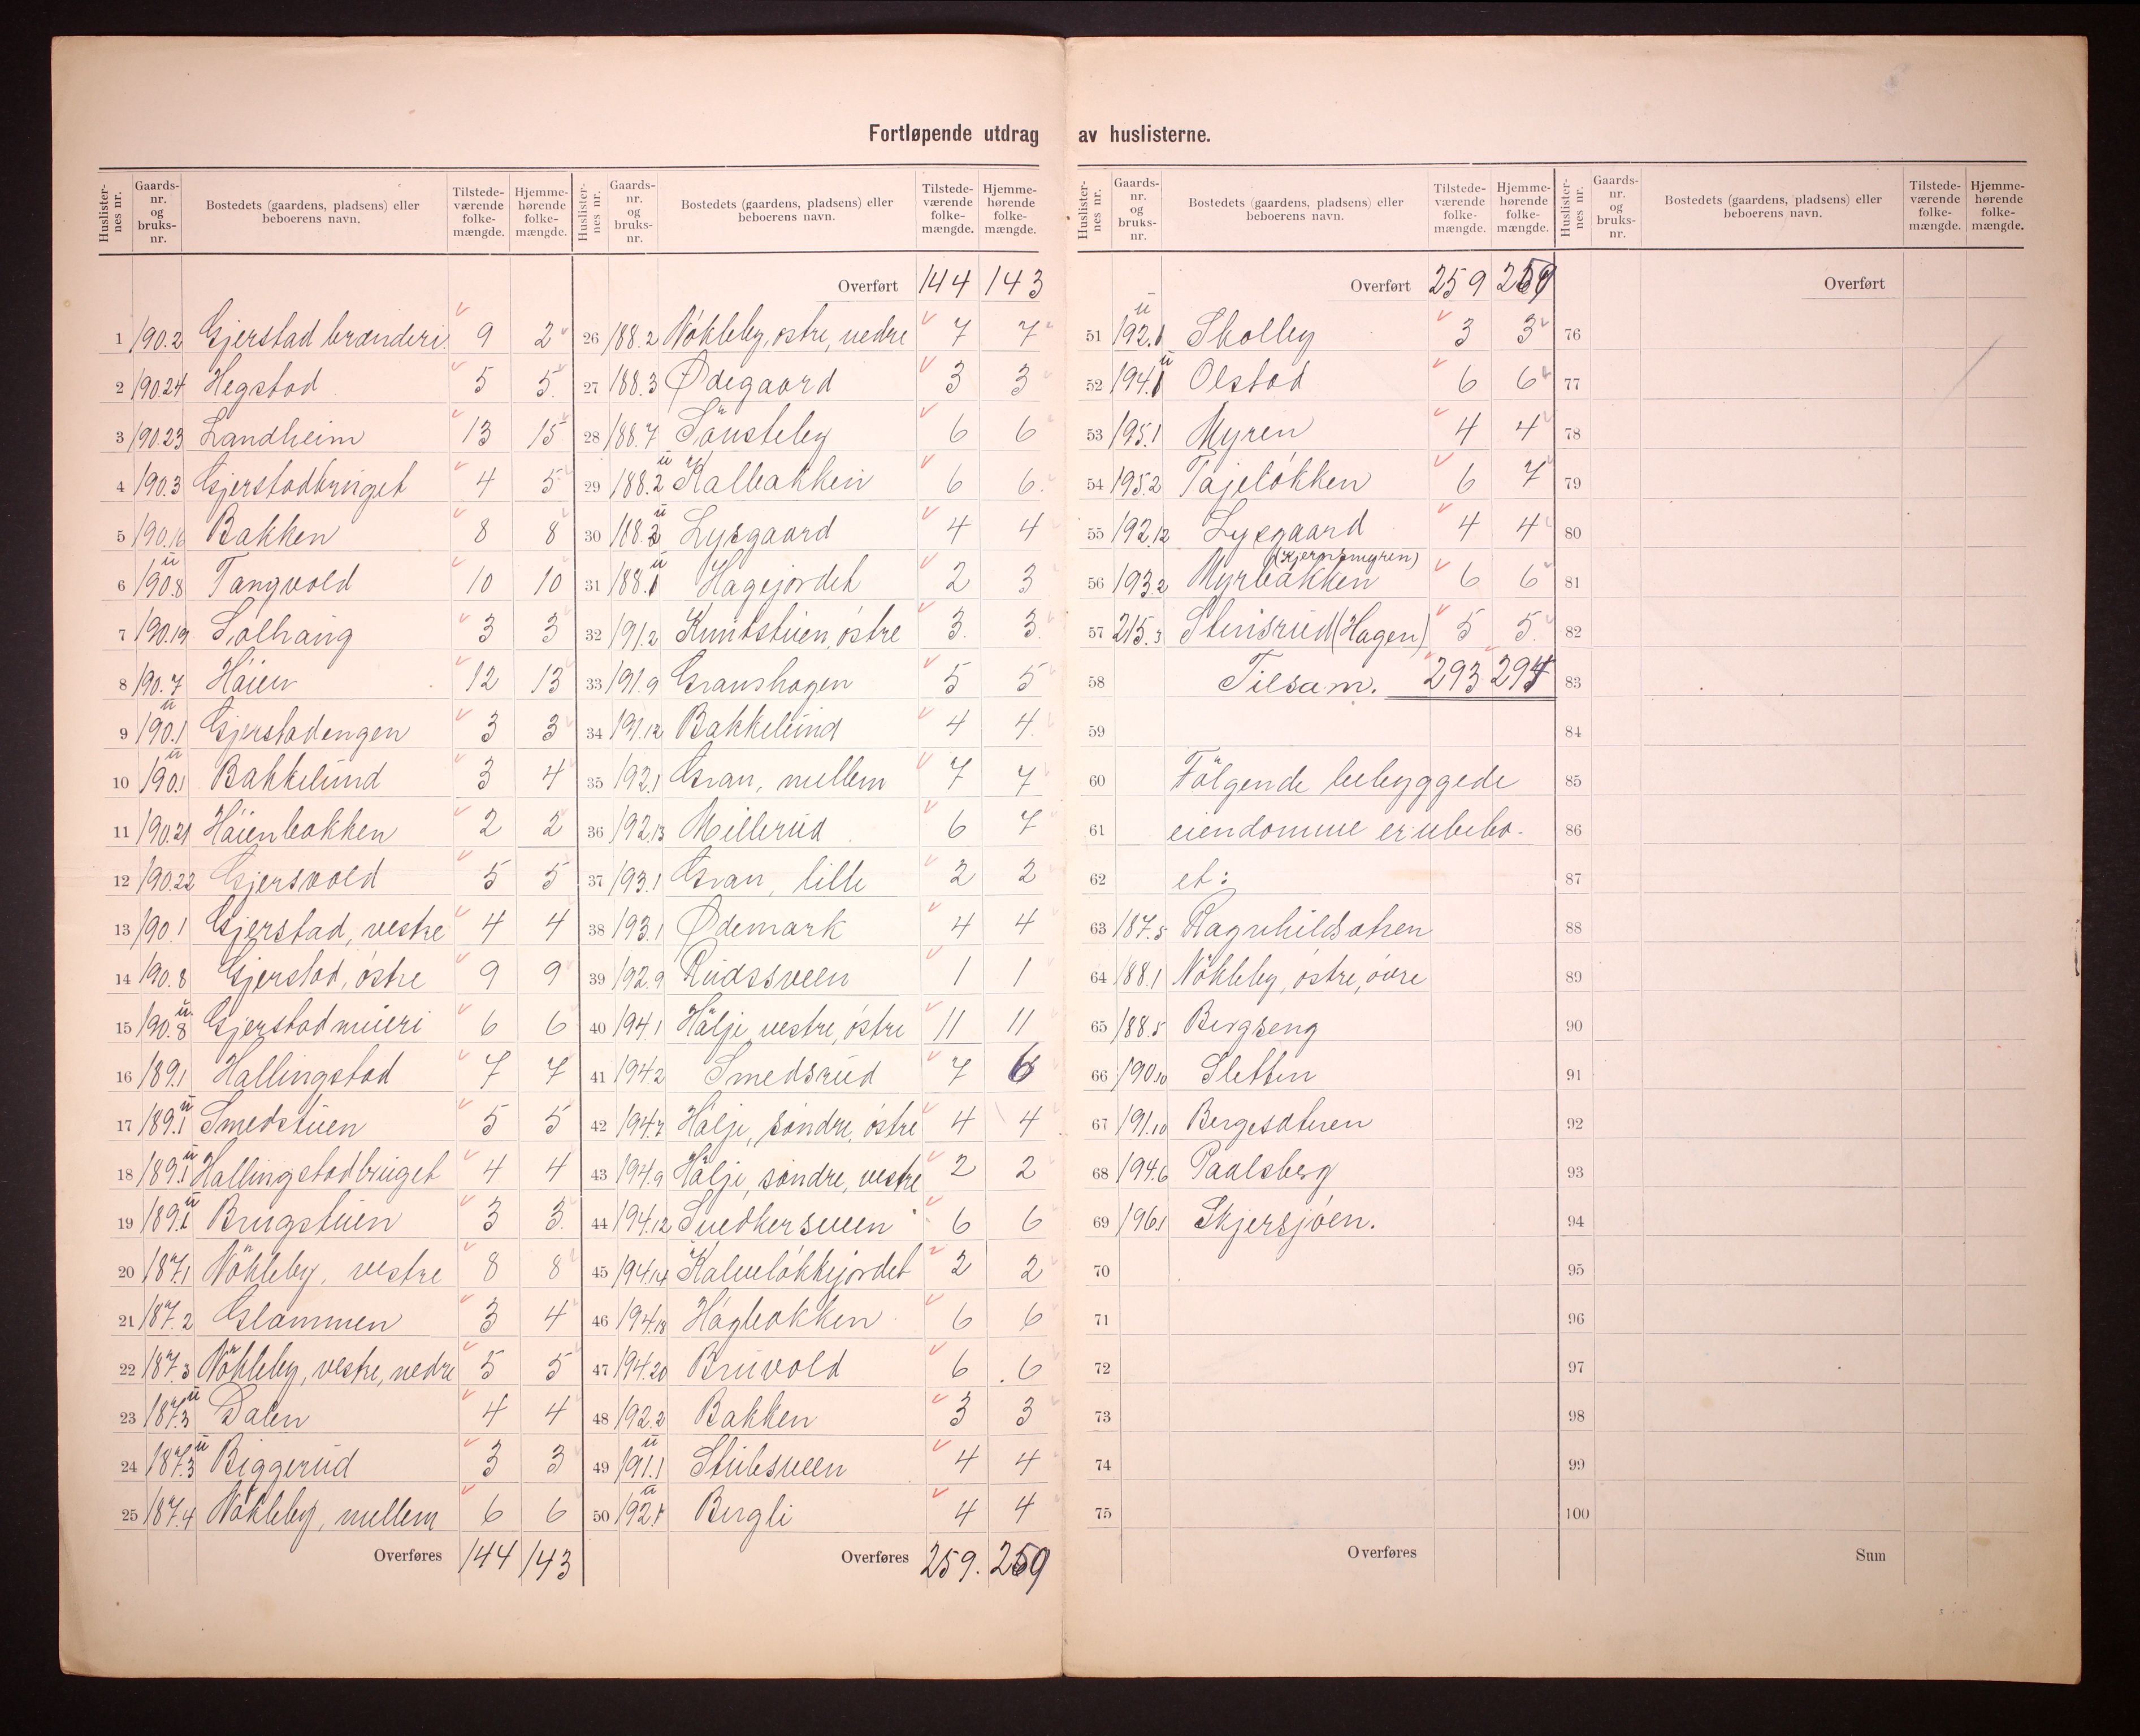 Fortløpende utdrag av huslisterne.
Huslister-nes nr. Gaards-nr. og bruks-nr. Bostedets (gaardens, pladsens) eller beboerens navn. Tilstede-værende folke-mængde. Hjemme-hørende folke-mængde.
1 190.2 Gjerstad brænderi. 9 2
2 190.24 Hegstad 5 5.
3 190.23 Landheim 13 15
4 190.3 Gjerstadbruget 4 5
5 190.16 Bakken 8 8
6 190.8 u Tangvold 10 10
7 190.19 Solhaug 3 3
8 190.7 Haien 12 13
9 190.1 u Gjerstadengen 3 3
10 190.1 u Bakkelund 3 4
11 190.21 Haienbakken 2 2
12 190.22 Gjersvold 5 5
13 190.1 Gjerstad, vestre 4 4
14 190.8 Gjerstad, östre 9 9
15 190.8 u. Gjerstad mieri 6 6
16 189.1 Hallingstad 7 7
17 189.1 u Smedstuen 5 5
18 189.1 u Hallingstadbruget 4 4
19 189.1 u Brugstuen 3 3.
20 187.1 Nökleby, vestre 8 8
21 187.2 Glammen 3 4
22 187.3 Nökleby, vestre, nedre 5 5
23 187.3 u Dalen 4 4
24 187.3 u Biggerud 3 3
25 187.4 Nökleby, mellem 6 6
Overføres 144 143
Huslister-nes nr. Gaards-nr. og bruks-nr. Bostedets (gaardens, pladsens) eller beboerens navn. Tilstede-værende folke-mængde. Hjemme-hørende folke-mængde.
Overført 144 143
26 188.2 Nökleby, östre, nedre 7 7
27 188.3 Ødegaard 3 3
28 188.7 Sönsteby 6 6
29 188.2 u Kalbakken 6 6.
30 188.2 u Lysgaard 4 4
31 188.1 u Hagejordet 2 3
32 191.2 Kuntstuen, östre 3. 3.
33 191.9 Granshagen 5 5
34 191.12 Bakkelund 4 4.
35 192.1 Gran, mellem 7 7
36 192.13 Millerud 6 7
37 193.1 Gran, lille 2 2
38 193.1 Ødemark 4 4
39 192.9 Rudssveen 1 1
40 194.1 Hälje vestre, östre 11 11
41 194.2 Smedsrud 7 6
42 194.7 Hälje, söndre, östre 4 4
43 194.9 Hälje, söndre, vestre 2 2
44 194.12 Snedkersveen 6 6
45 194.14 Kalvelökkjordet 2 2
46 194.18 Högbakken 6 6
47 194.20 Bruvold 6 6
48 192.2 Bakken 3 3
49 191.1 u Stubsveen 4 4
50 192.1 u Bergli 4 4
Overføres 259. 259
Huslister-nes nr. Gaards-nr. og bruks-nr. Bostedets (gaardens, pladsens) eller beboerens navn. Tilstede-værende folke-mængde. Hjemme-hørende folke-mængde.
Overført 259 259
51 192.1 u Skolby 3 3
52 194.1 u Olstad 6 6
53 195.1 Myren 4 4
54 195.2 Tajelökken 6 7
55 192.12 Lysgaard 4 4
56 193.2 Myrbakken (Kjernsmyren) 6 6
57 215.3 Stensrud (Hagen) 5 5.
58 Tilsam. 293 294
59
60 Fölgende bebyggede
61 eiendomme er ubebo-
62 et:
63 187.5 Ragnhildsætren
64 188.1 Nökleby, östre, övre
65 188.5 Bergseng
66 190.10 Sletten
67 191.10 Bergesæteren
68 194.6 Paalsberg
69 196.1 Skjersjöen.
70
71
72
73
74
75
Overføres
Huslister-nes nr. Gaards-nr. og bruks-nr. Bostedets (gaardens, pladsens) eller beboerens navn. Tilstede-værende folke-mængde. Hjemme-hørende folke-mængde.
Overført
76
77
78
79
80
81
82
83
84
85
86
87
88
89
90
91
92
93
94
95
96
97
98
99
100
Sum